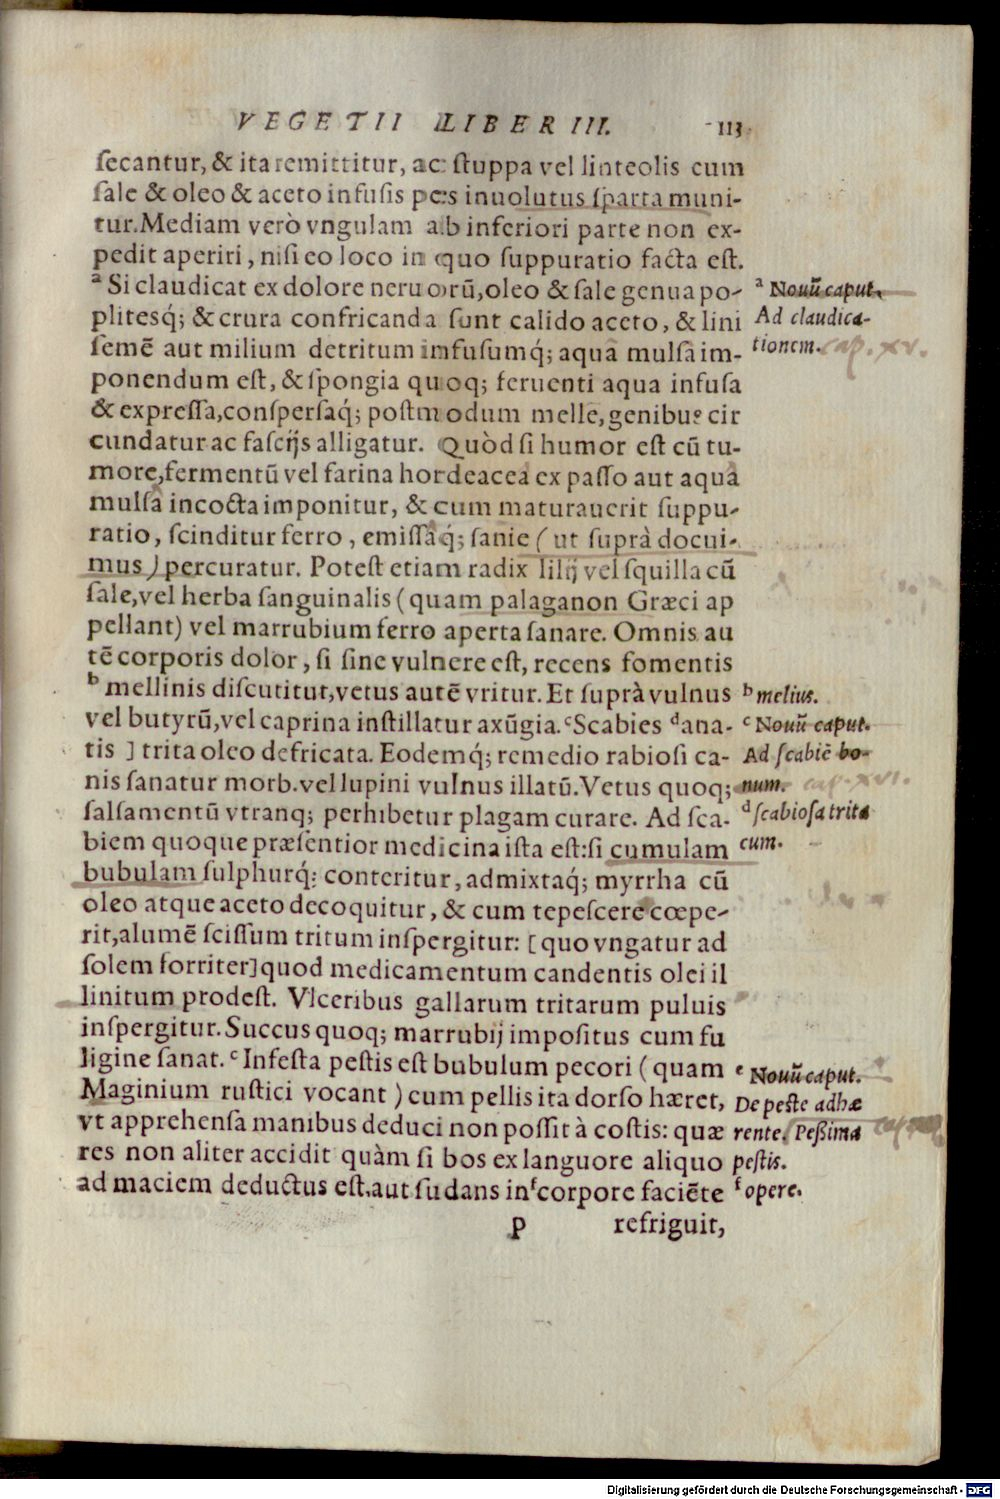 VEGETII LIBER III. 113
secantur, & ita remittitur, ac stuppa vel linteolis cum
sale & oleo & aceto infusis pes inuolutus sparta muni-
tur. Mediam verò vngulam ab inferiori parte non ex-
pedit aperiri, nisi eo loco in quo suppuratio facta est.
ᵃ Si claudicat ex dolore neruorū, oleo & sale genua po-
plitesq́; & crura confricanda sunt calido aceto, & lini
semē aut milium detritum infusumq́; aqua mulsa im-
ponendum est, & spongia quoq; feruenti aqua infusa
& expressa, conspersaq́; postmodum melle, genibus cir
cundatur ac fascijs alligatur. Quòd si humor est cū tu-
more, fermentū vel farina hordeacea ex passo aut aqua
mulsa incocta imponitur, & cum maturauerit suppu-
ratio, scinditur ferro, emissaq́; sanie (ut suprà docui-
mus) percuratur. Potest etiam radix lilij vel squilla cū
sale, vel herba sanguinalis (quam palaganon Græci ap
pellant) vel marrubium ferro aperta sanare. Omnis au
tē corporis dolor, si sine vulnere est, recens fomentis
ᵇ mellinis discutitur, vetus autē vritur. Et suprà vulnus
vel butyrū, vel caprina instillatur axūgia. ᶜ Scabies ᵈ ana-
tis ] trita oleo defricata. Eodemq́; remedio rabiosi ca-
nis sanatur morb. vel lupini vulnus illatū. Vetus quoq;
salsamentū vtranq; perhibetur plagam curare. Ad sca-
biem quoque præsentior medicina ista est: si cumulam
bubulam sulphurq́; conteritur, admixtaq́; myrrha cū
oleo atque aceto decoquitur, & cum tepescere cœpe-
rit, alumē scissum tritum inspergitur: [quo vngatur ad
solem forriter] quod medicamentum candentis olei il
linitum prodest. Vlceribus gallarum tritarum puluis
inspergitur. Succus quoq; marrubij impositus cum fu
ligine sanat. ᵉ Infesta pestis est bubulum pecori (quam
Maginium rustici vocant) cum pellis ita dorso hæret,
vt apprehensa manibus deduci non possit à costis: quæ
res non aliter accidit quàm si bos ex languore aliquo
ad maciem deductus est, aut sudans in ᶠ corpore faciēte
p refriguit,
ᵃ Nouū caput.
Ad claudica-
tionem. cap. xv.
ᵇ melius.
ᶜ Nouū caput.
Ad scabiē bo-
num. cap. xvi.
ᵈ scabiosa trita
cum.
ᵉ Nouū caput.
De peste adhæ
rente. Peßima
pestis.
ᶠ opere.
Digitalisierung gefördert durch die Deutsche Forschungsgemeinschaft - DFG